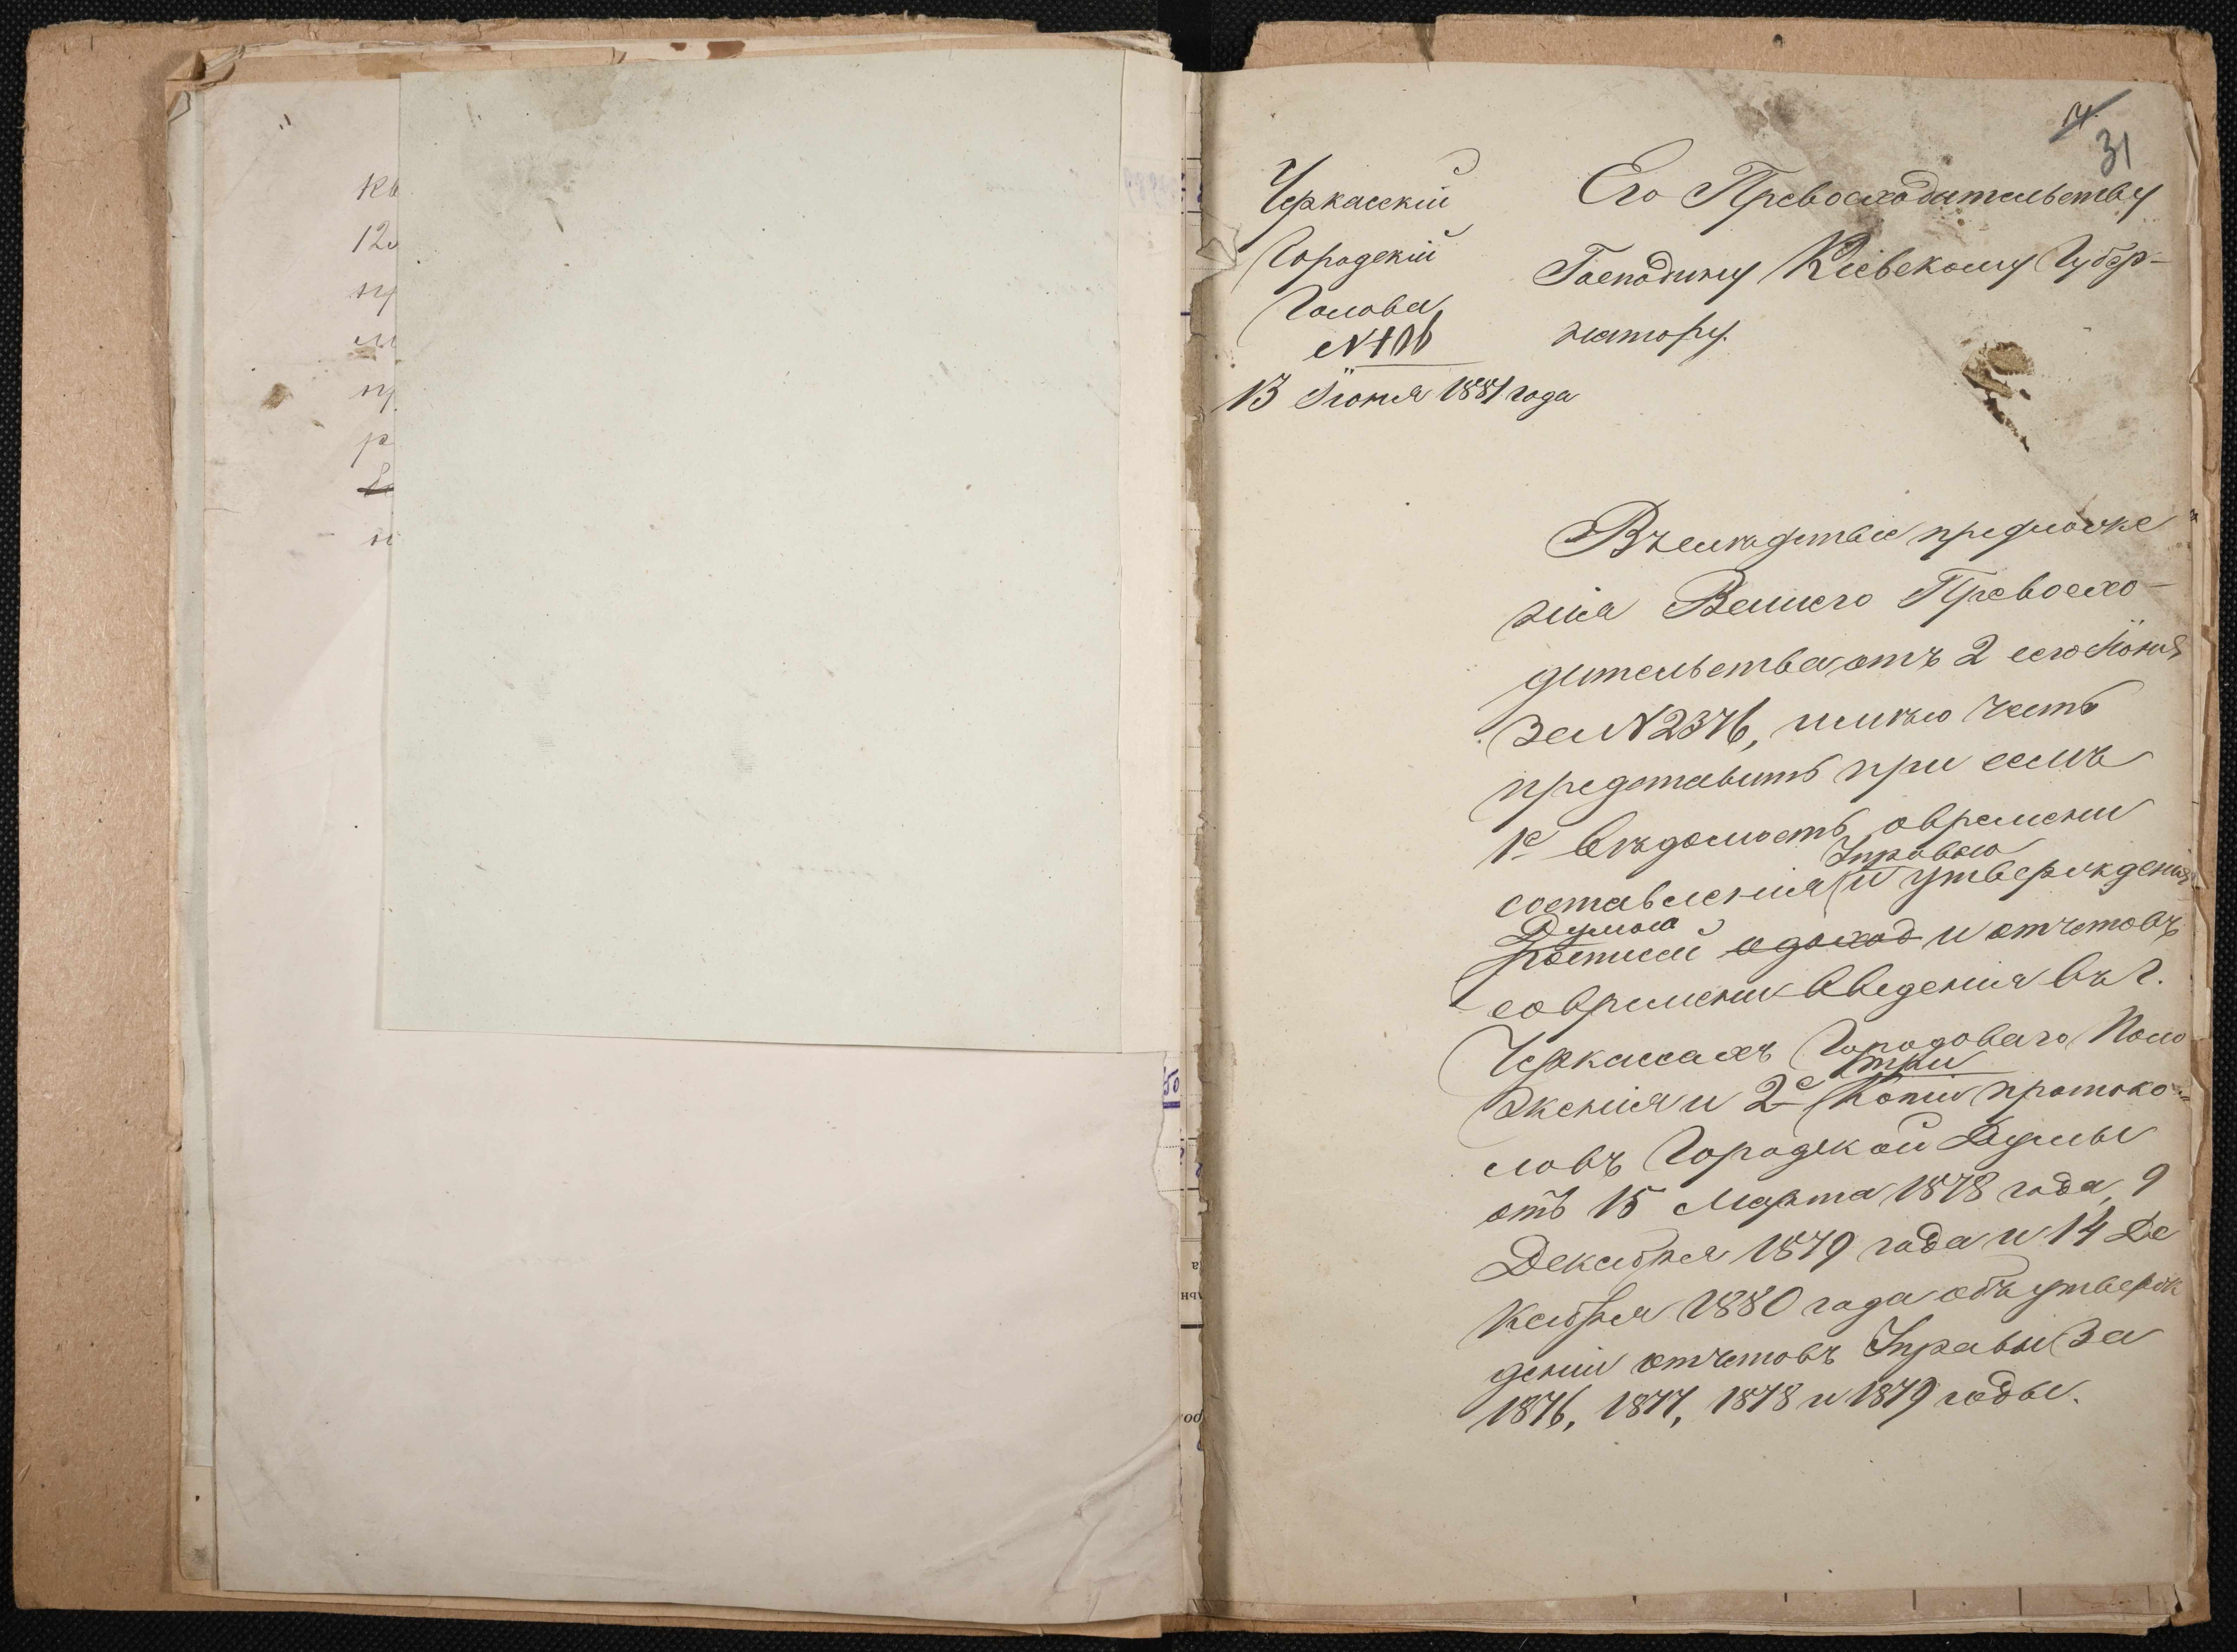 кв
12
пр
м
пр
р
31
Черкасскій
Городскій
Голова
№ 406
13 Іюня 1881 года
Его Превосходительству
Господину Кіевскому Губер-
натору.
Вслѣдствіе предложе
нія Вашего Превосхо-
дительства отъ 2 сего Іюня
за № 2376, имѣю честь
представить при семъ
1е вѣдомость о времени
Управою
составленія и утвержденія
Думою
росписей о доход и отчетовъ
со времени введенія въ г.
Черкассахъ Городоваго Поло
три
женія и 2е копіи протоко-
ловъ Городской Думы
отъ 15 Марта 1878 года, 9
Декабря 1879 года и 14 Де
кабря 1880 года объ утверж
деніи отчетовъ Управы за
1876, 1877, 1878 и 1879 годы.